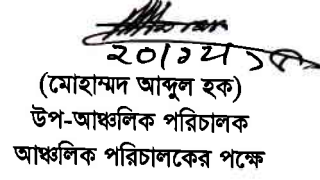 (মোহাম্মদ আব্দুল হক)
উপ-আঞ্চলিক পরিচালক
আঞ্চলিক পরিচালকের পক্ষে